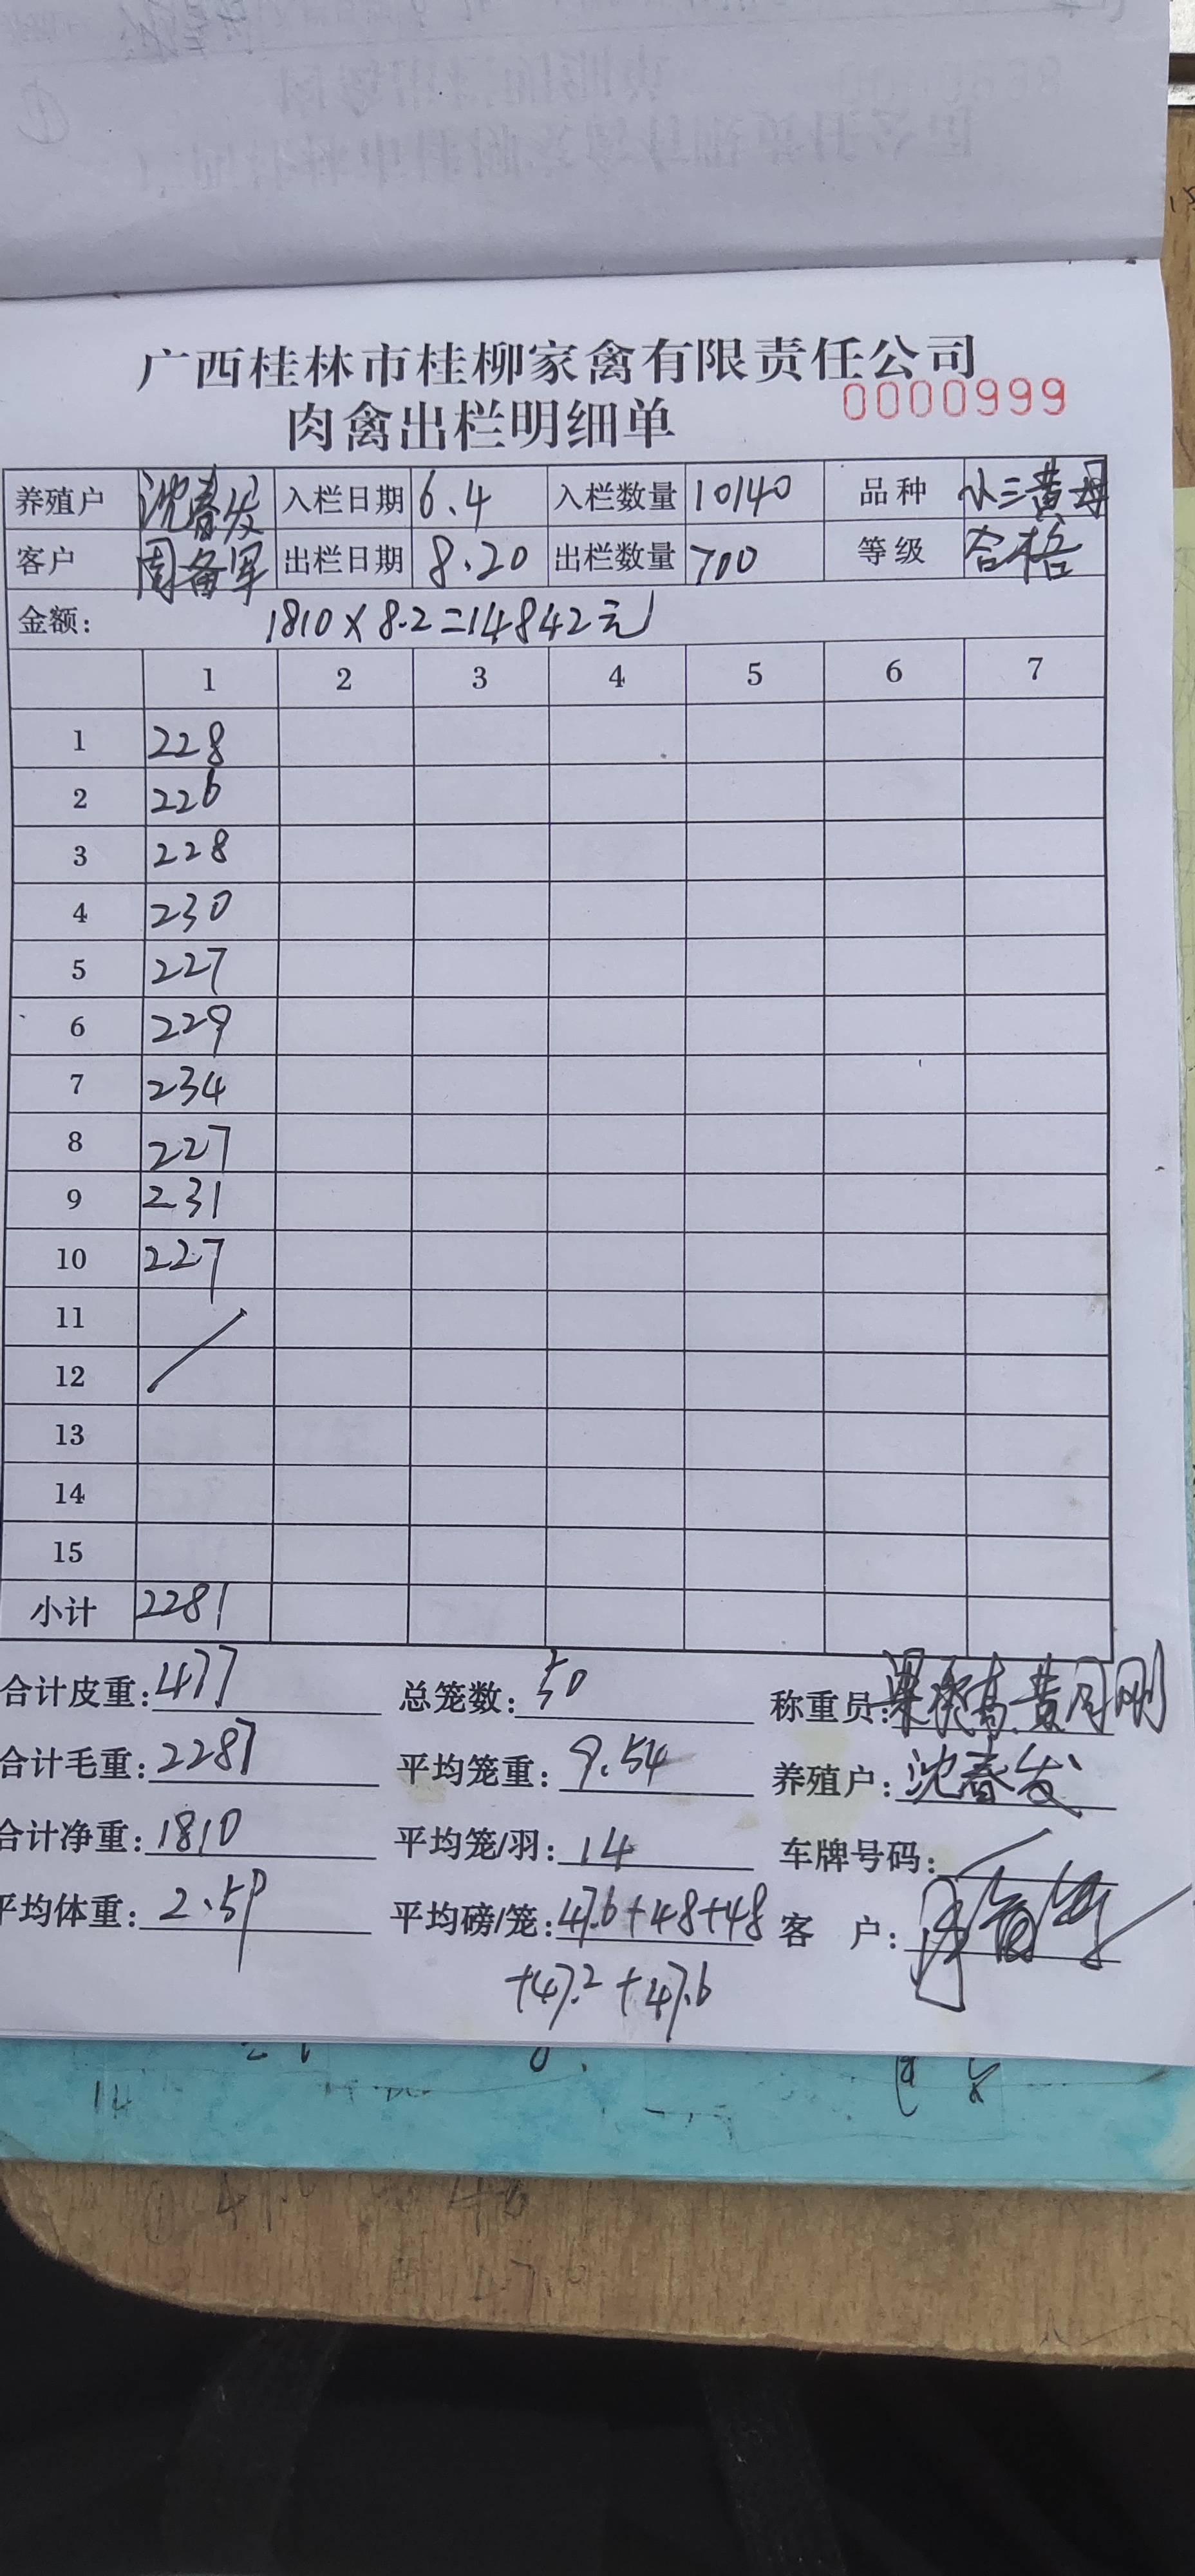 广西桂林市桂柳家禽有限责任公司
肉禽出栏明细单 0000999
养殖户 沈春发 入栏日期 6.4 入栏数量 10140 品种 小三黄母
客户 周备军 出栏日期 8.20 出栏数量 700 等级 合格
金额: 1810×8.2=14842元
1 2 3 4 5 6 7
1 228
2 226
3 228
4 230
5 227
6 229
7 234
8 227
9 231
10 227
11
12
13
14
15
小计 2281
合计皮重: 477 总笼数: 50 称重员:
合计毛重: 2287 平均笼重: 9.54 养殖户: 沈春发
合计净重: 1810 平均笼/羽: 14 车牌号码:
平均体重: 2.59 平均磅/笼: 47.6+48+48 客 户:
+47.2+47.6